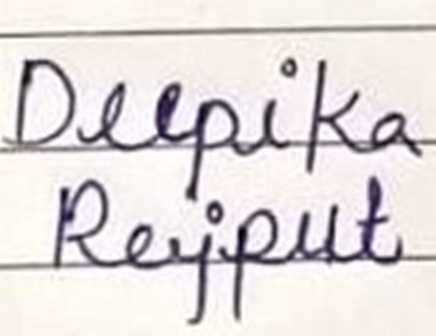 Deepika
Rejput